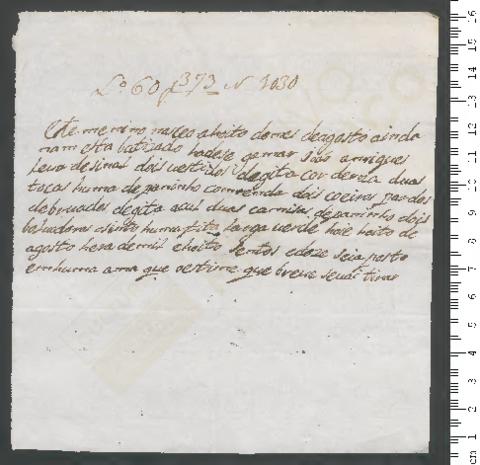 Lo 60 f 373 N 1030
Este menino naceo ahoito domes deagosto ainda
nam esta batizado hadese xamar João amrigues
leva desinal dois vestidos degita cor deroza duas
tocas huma de paninho com renda dois coeiros pardos
debruados degita azul duas camizas de paninho dois
babadores ahinto huma fita larga verde hoje hoito de
agosto hera demil ehoito sentos edoze seia posto
emhuma ama que oestime que breve seuai tirar
cm 1 2 3 4 5 6 7 8 9 10 11 12 13 14 15 16